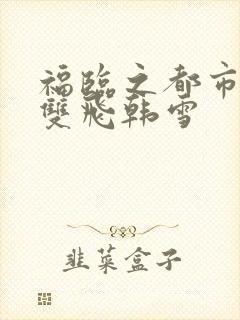 福臨之都市
雙飛韩雪
韭菜盒子